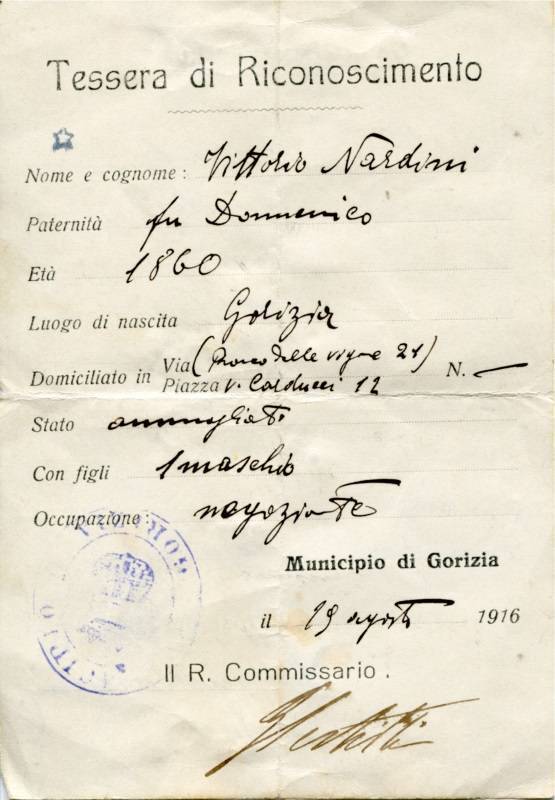 Tessera di Riconoscimento
Nome e cognome: Vittorio Nardini
Paternità fu Domenico
Età 1860
Luogo di nascita Gorizia
Domiciliato in Via (Parco delle vigne 21) N. —
Piazza v. Carducci 12
Stato ammogliato
Con figli 1 maschio
Occupazione: negoziante
Municipio di Gorizia
il 19 agosto 1916
Il R. Commissario.